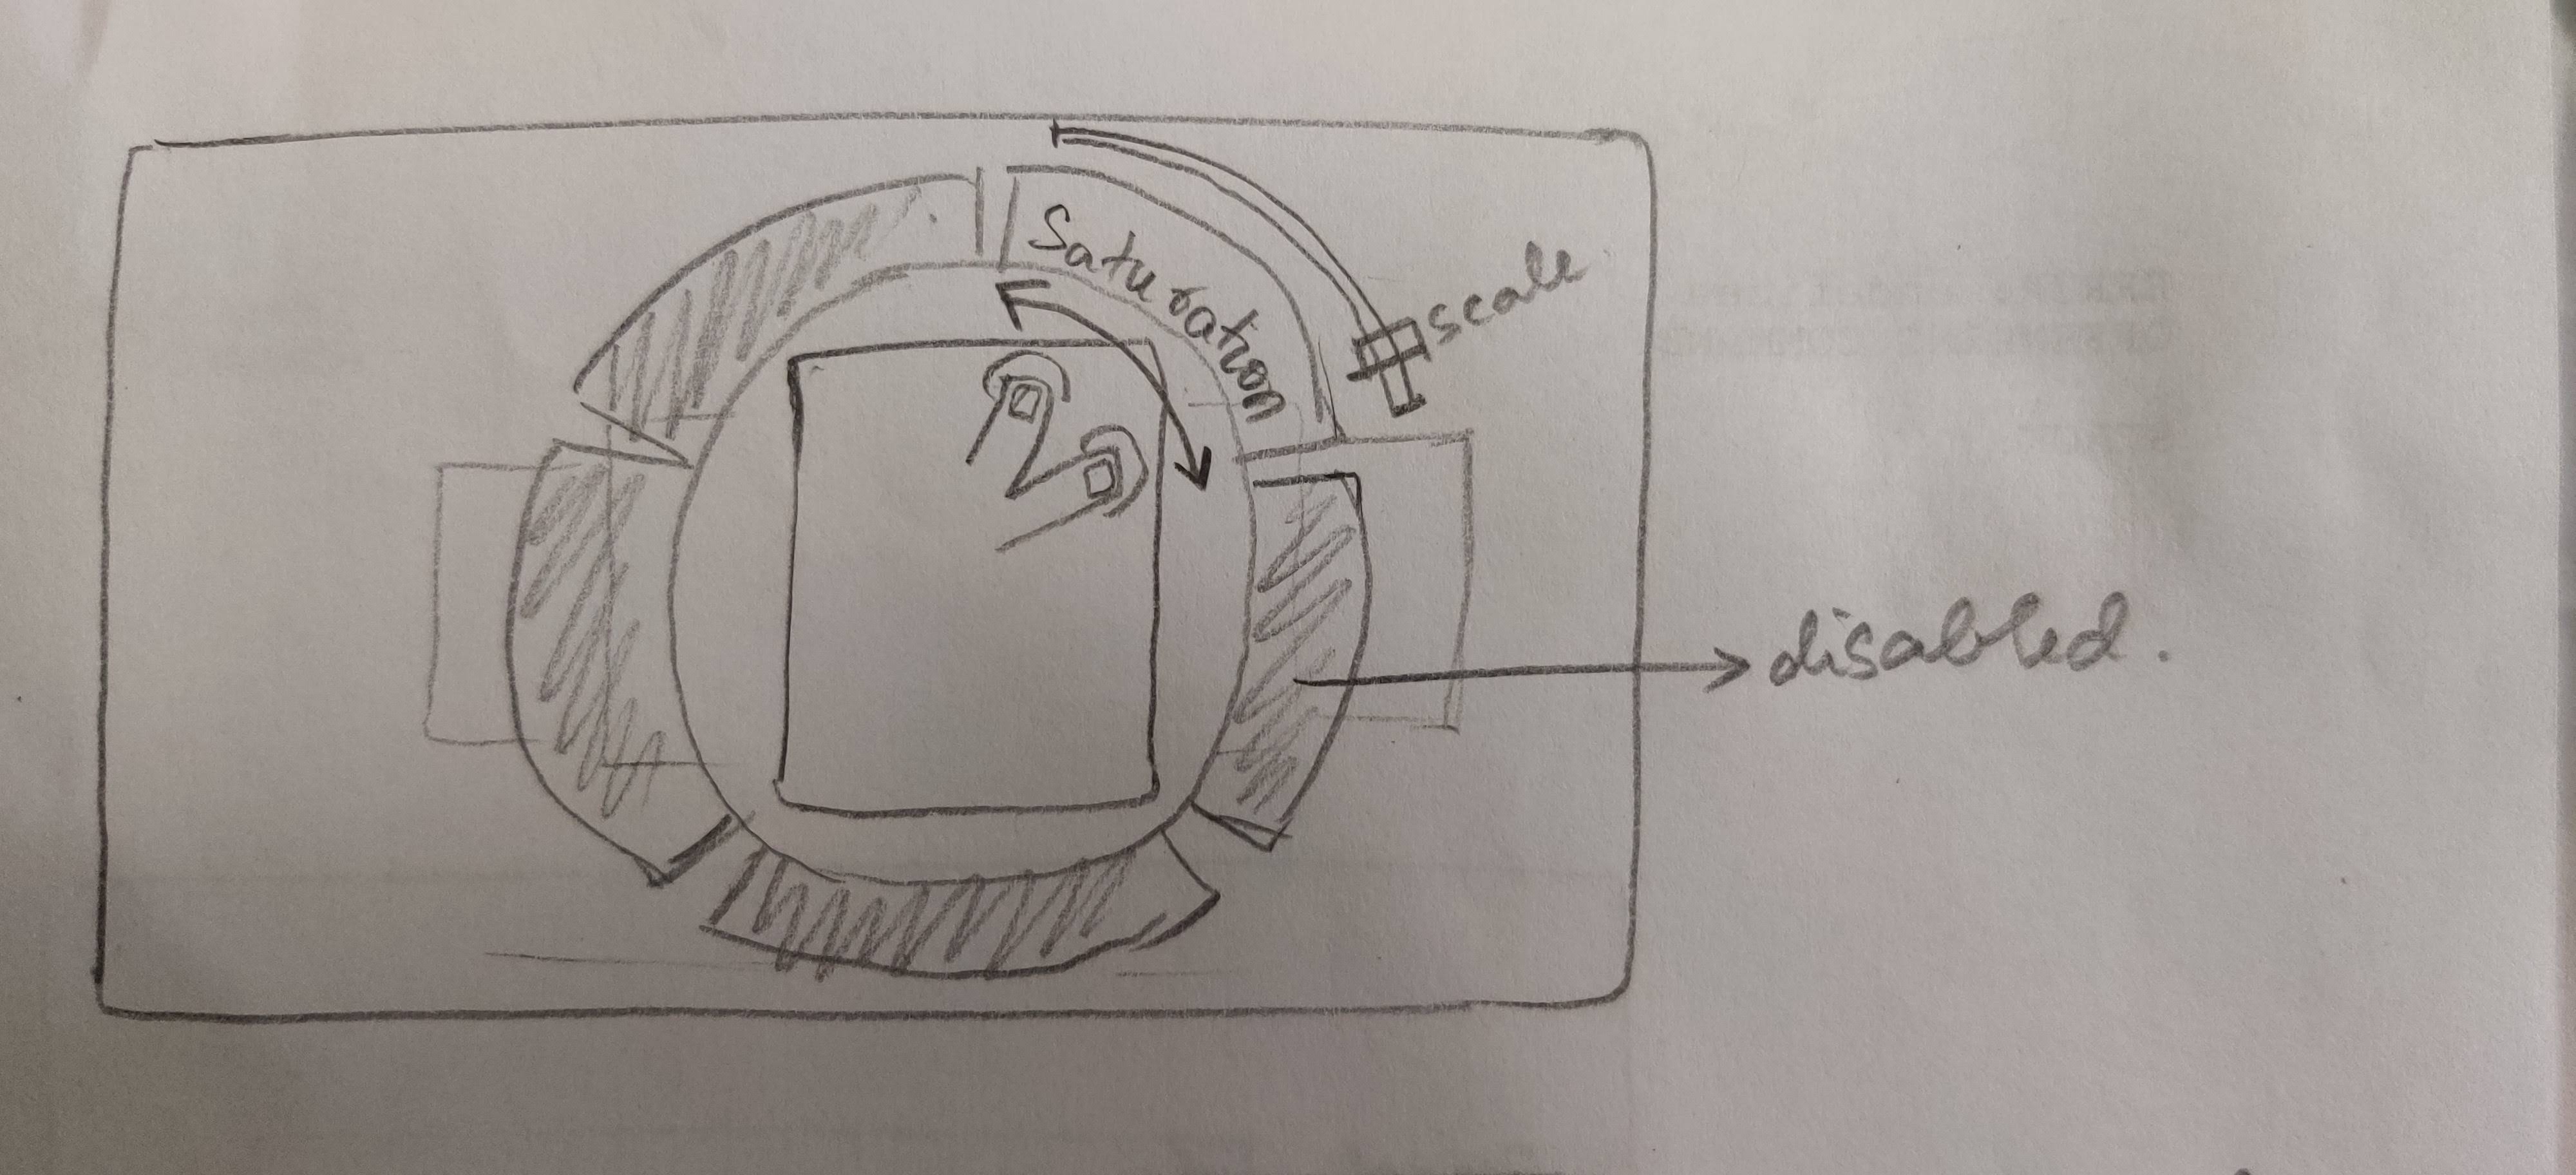 Saturation
scale
disabled.